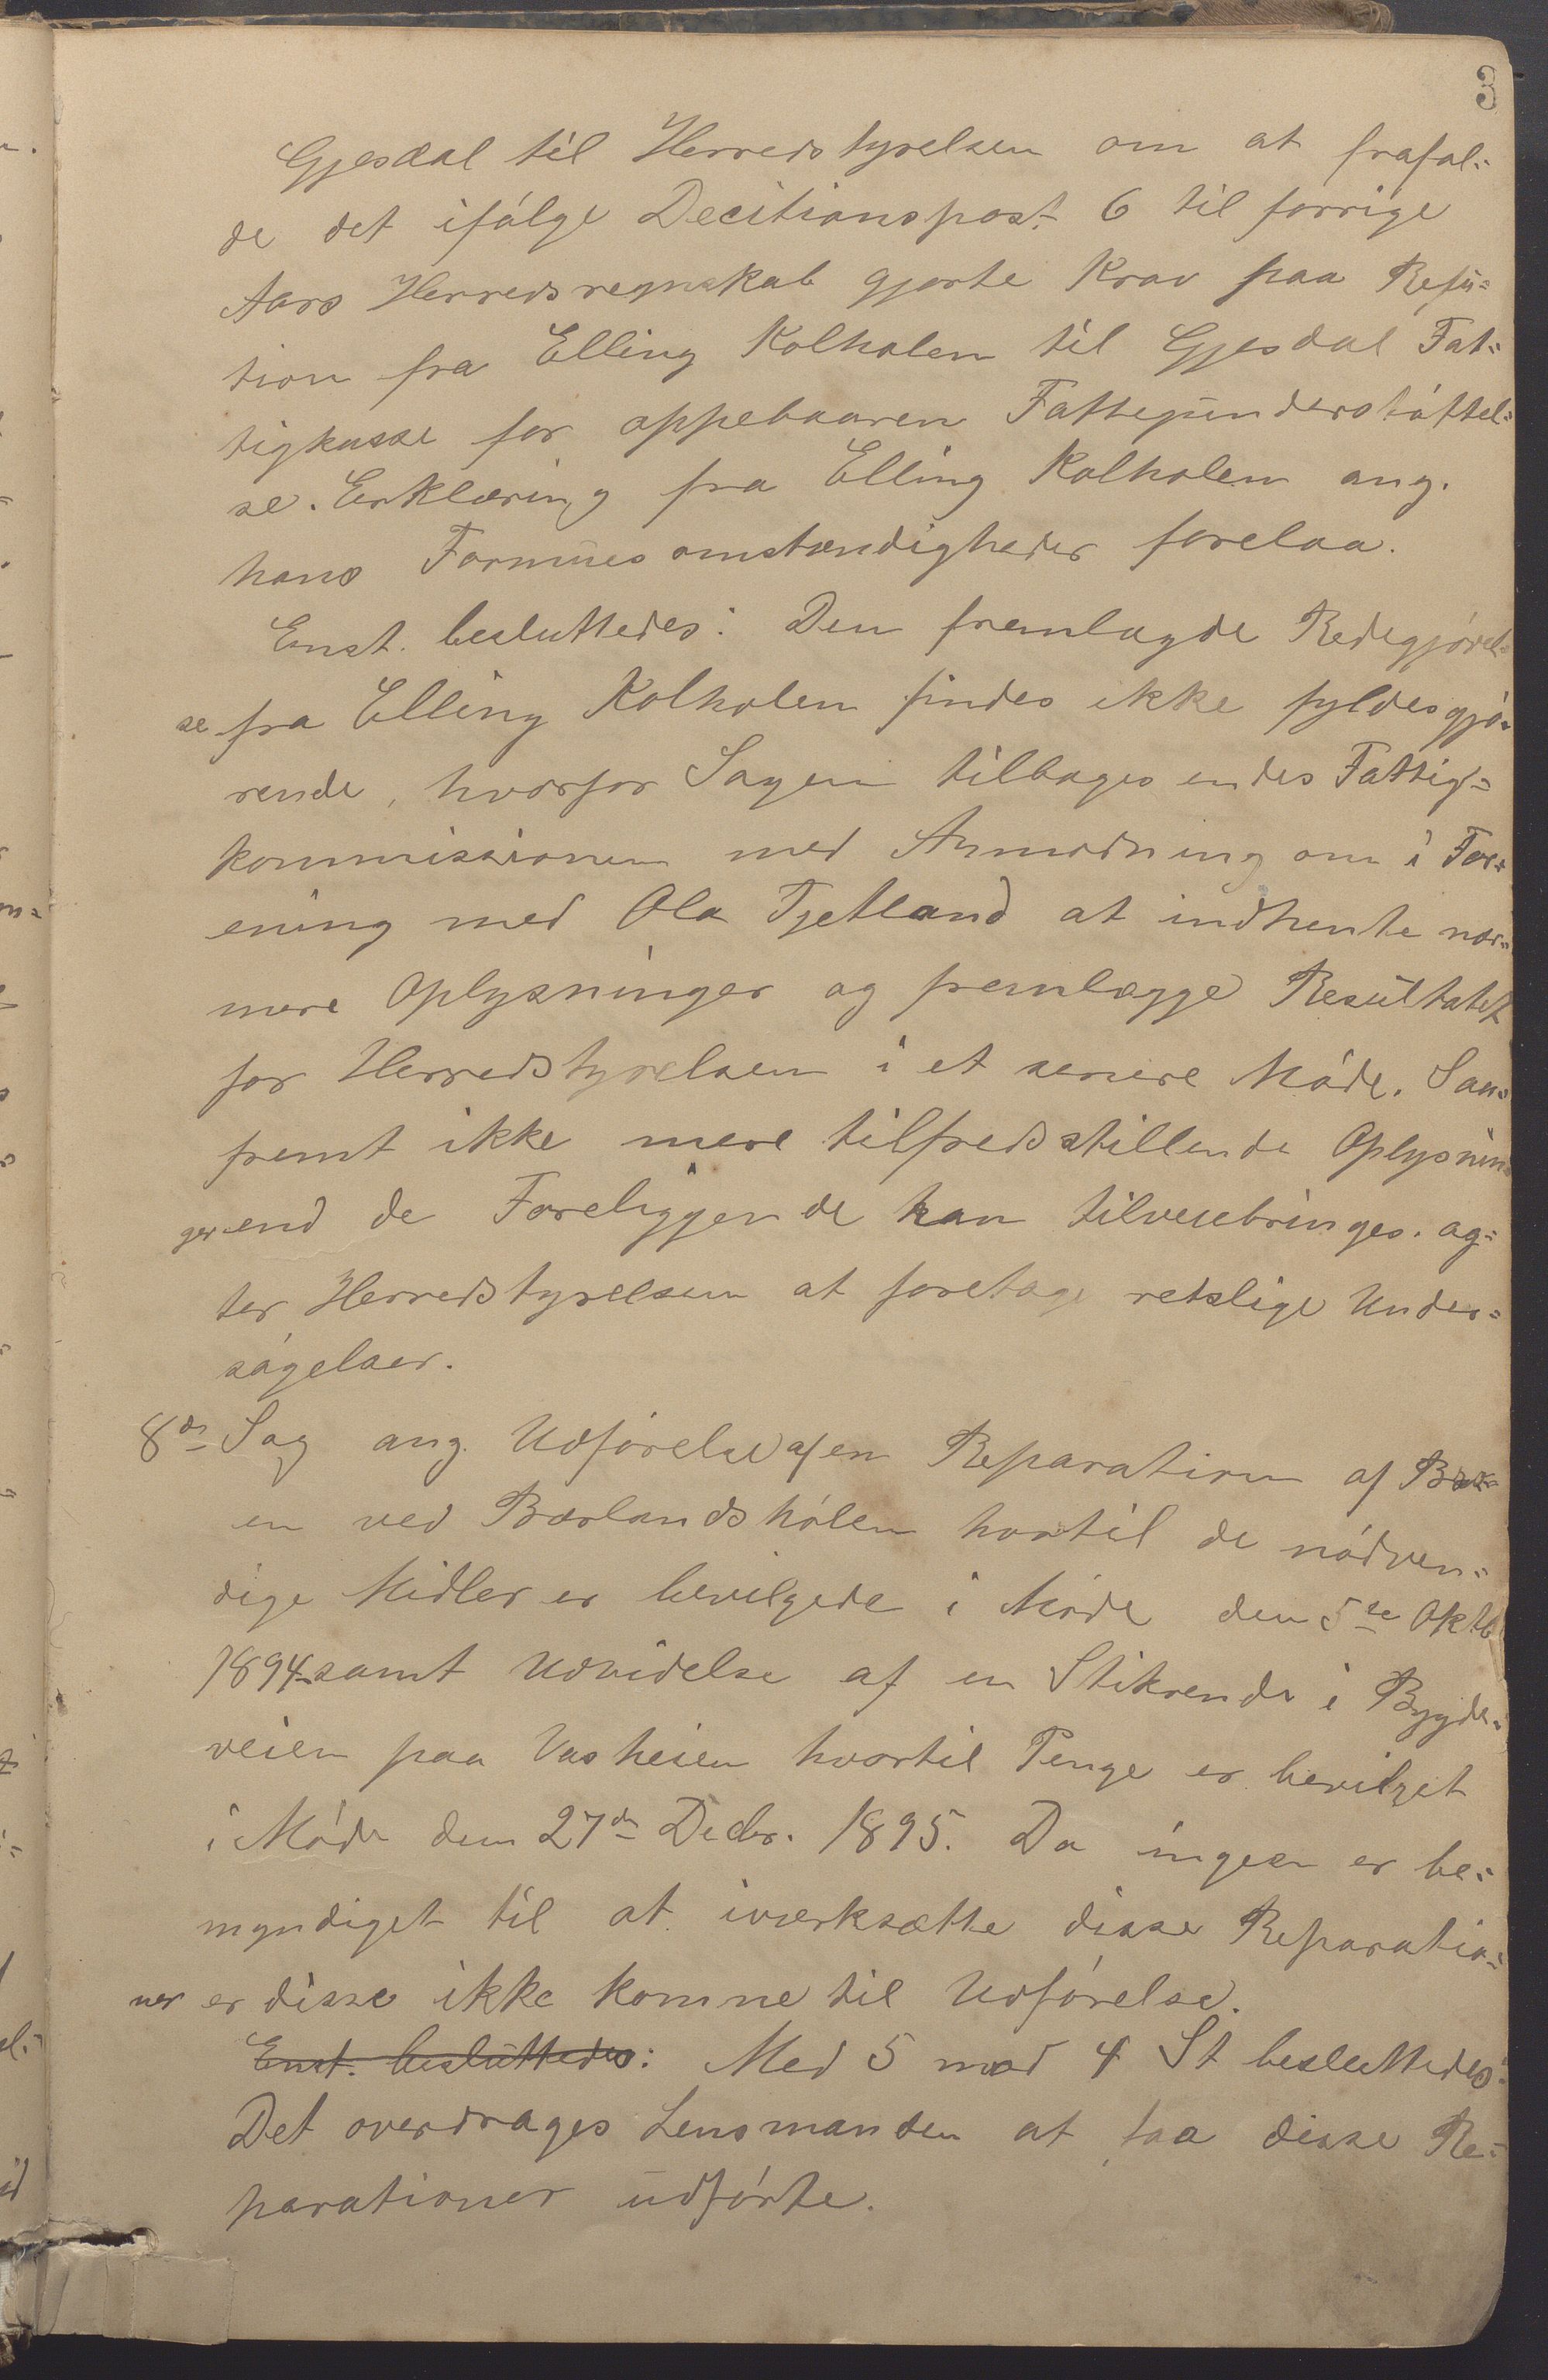 3
Gjesdal til Herredstyrelsen om at frafal=
de det ifólge Decitionspost 6 til forrige
Aars Herredsregnskab gjorte Krav paa Refu=
tion fra Elling Kolholen til Gjesdal Fat=
tigkasse for oppebaaren Fattegunderstóttel=
se. Erklæring fra Elling Kolholen ang.
hans Formuesomstændigheder forelaa.
Enst. besluttedes: Den fremlagde Redegjórel=
se fra Elling Kolholen findes ikke fyldesgjó=
rende, hvorfor Sagen tilbagesendes Fattig=
kommissionen med Anmodning om i For=
ening med Ola Tjetland at indhente nær=
mere Oplysninger og fremlægge Resultatet
for Herredstyrelsen i et senere Móde. Saa=
fremt ikke mere tilfredsstillende Oplysnin=
ger end de Foreliggende kan tilveiebringes. ag=
ter Herredstyrelsen at foretage retslige Under=
sógelser.
8de Sag ang. Udfórelse af en Reparation af
en ved Bærlandshólen hvortil de nódven=
dige Midler er bevilgede i Móde den 5te Oktb
1894 samt Udvidelse af en Stikrende i Bygde=
veien paa Vasheien hvortil Penge er bevilget
i Móde den 27de Decbr. 1895. Da ingen er be=
myndiget til at iværksætte disse Reparatio=
ner er disse ikke komne til Udfórelse.
Enst. besluttedes: Med 5 mod 4 St besluttedes:
Det overdrages Lensmanden at faa disse Re=
parationer udfórte.